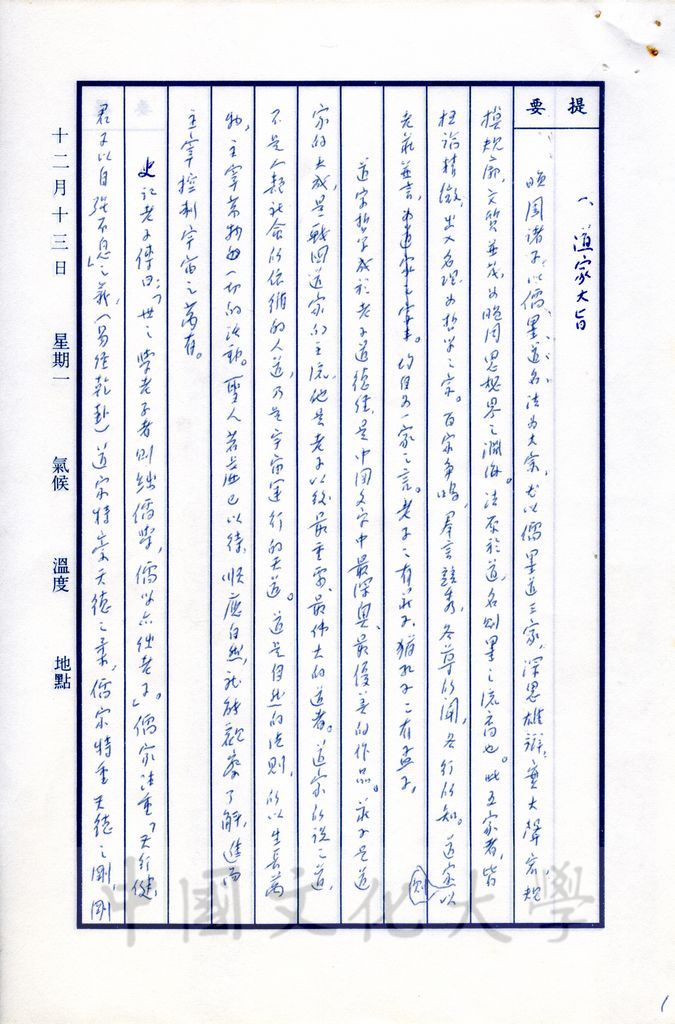 提要
一、道家大旨
晚周諸子,以儒墨道名法為大宗,尤以儒墨道三家,深思雄辯,實大聲宏,規
模規廓,文質並茂,為晚周思想界之淵海。法原於道,名則墨之流裔也。此五家者,皆
推論精微,出入名理,為哲學之宗。百家爭鳴,羣言競秀,各尊所聞,各行所知。道家以
老莊並言,則均自為一家之言。老子之有莊子,猶孔子之有孟子。
道家哲學成於老子道德經,是中國文字中最深奧、最優美的作品。莊子是道
家的大成,是戰國道家的主流,他是老子以後最重要、最偉大的道者。道家的說之道,
不是人類社會的依循的人道,乃是宇宙運行的天道。道是自然的法則,所以生長萬
物,主宰萬物的一切的活動。聖人若虛已以待,順應自然,就能觀察了解,進而
主宰控制宇宙之萬有。
史記老子傳曰:「世之學老子者則絀儒學,儒學亦絀老子。」儒家注重「天行健,
君子以自強不息」之義,(易經乾卦)道家特崇天德之柔,儒家特重天德之剛,剛
十二月十三日 星期一 氣候 溫度 地點
中國文化大學
1